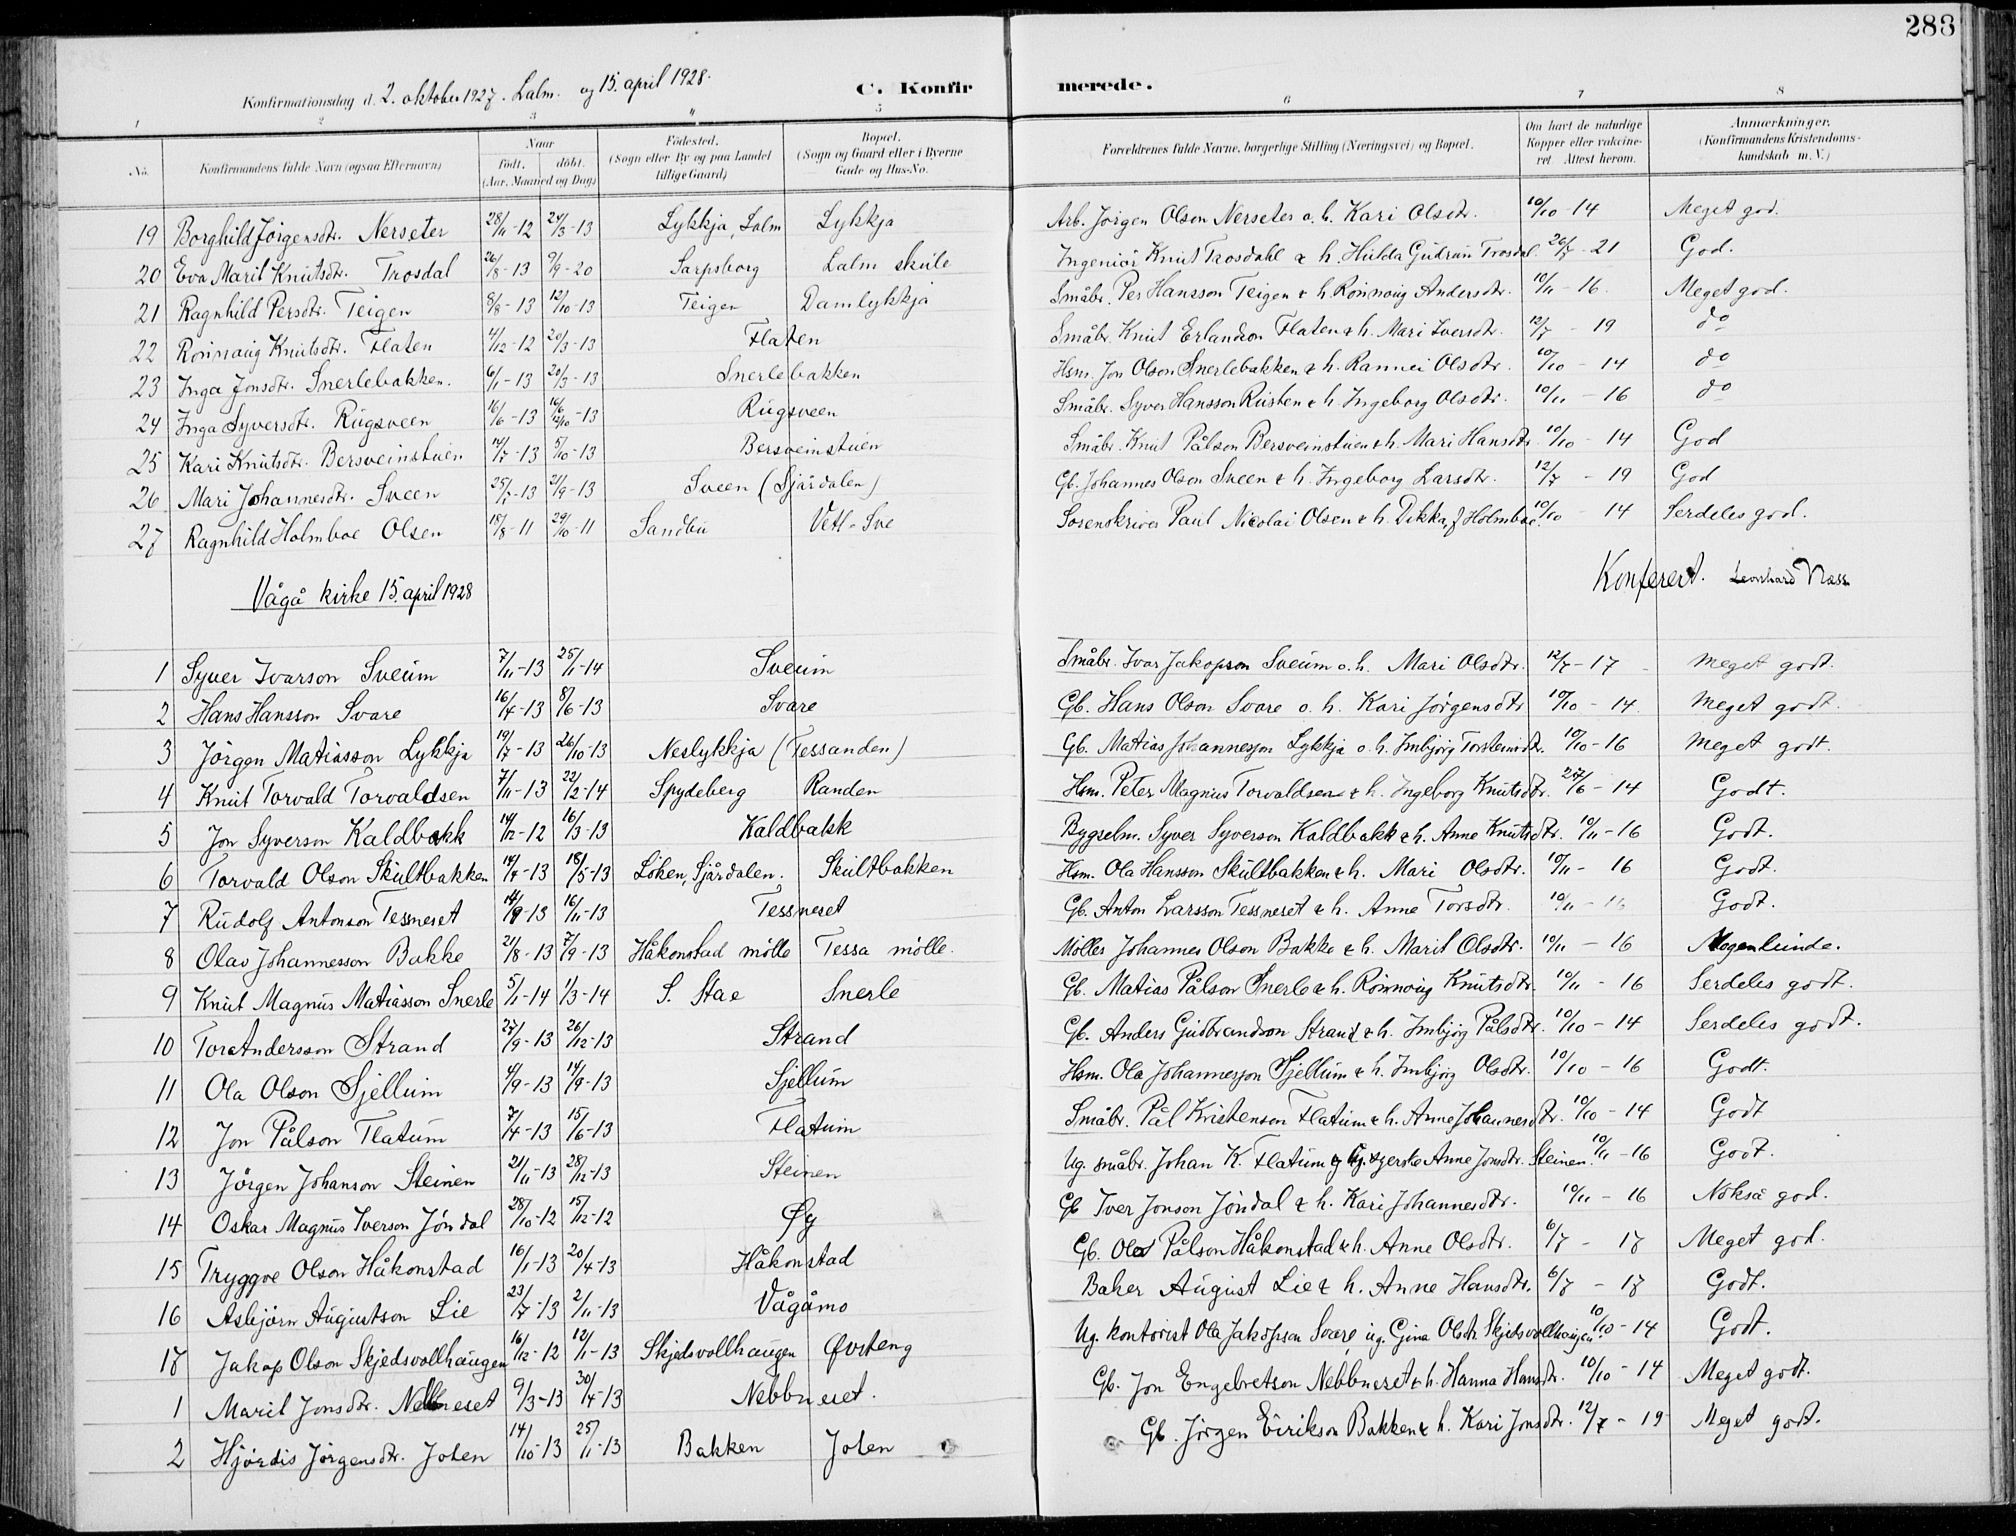 283
Konfirmationsdag d. 2. oktober 1927. Lalm. og 15. april 1928.
C. Konfirmerede.
1 2 3 4 5 6 7 8
No. | Konfirmandens fulde Navn (ogsaa Efternavn) | Naar født, døbt. (Aar, Maaned og Dag) | Fødested. (Sogn eller By og paa Landet tillige Gaard) | Bopæl. (Sogn og Gaard eller i Byerne Gade og Hus-No. | Forældrenes fulde Navne, borgerlige Stilling (Næringsvei) og Bopæl. | Om havt de naturlige Kopper eller vakcineret. Attest herom. | Anmærkninger. (Konfirmandens Kristendomskundskab m. V.)
19 Borghild Jørgensdtr. Nerseter 28/11-12 24/3-13 Lykkja, Lalm Lykkja Arb. Jørgen Olson Nerseter o. h. Kari Olsdtr. 10/10-14 Meget god.
20 Eva Marit Knutsdtr. Trosdal 26/8-13 9/9-20 Sarpsborg Lalm skule Ingeniör Knut Trosdahl & h. Hulda Gudrun Trosdal. 26/7-21 God.
21 Ragnhild Persdtr. Teigen 8/8-13 12/10-13 Teigen Damlykkja Småbr. Per Hansson Teigen & h. Rönnaug Andersdtr. 10/11-16. Meget god.
22 Rönnaug Knutsdtr. Flaten 4/12-12 20/3-13 Flaten Småbr. Knut Erlandson Flaten & h. Mari Iversdtr. 12/7-19 do
23 Inga Jonsdtr. Snerlebakken. 6/1-13 20/3-13 Snerlebakken Hsm. Jon Olson Snerlebakken & h. Rannei Olsdtr. 10/10-14 do
24 Inga Syversdtr. Rugsveen 16/6-13 12/10-13 Rugsveen Småbr. Syver Hansson Rusten & h. Ingeborg Olsdtr. 10/11-16 do
25 Kari Knutsdtr. Bersveinstuen 14/7-13 5/10-13 Bersveinstuen Småbr. Knut Pålson Bersveinstuen & h. Mari Hansdtr. 10/10-14 God
26 Mari Johannesdtr. Sveen 25/7-13 21/9-13 Sveen (Sjårdalen) Gb. Johannes Olson Sveen & h. Ingeborg Larsdtr. 12/7-19 God
27 Ragnhild Holmboe Olsen 18/8-11 29/10-11 Sandbu Vetl-Sve Sorenskriver Paul Nicolai Olsen & h. Dikka, f. Holmboe. 10/10-14 Serdeles god.
Vågå kirke 15. april 1928
Konferert. Leonhard Næss
1 Syver Ivarson Sveum 7/11-13 25/1-14 Sveum Småbr. Ivar Jakopson Sveum o. h. Mari Olsdtr. 12/7-17 Meget godt.
2 Hans Hansson Svare 16/4-13 8/6-13 Svare Gb. Hans Olson Svare o. h. Kari Jørgensdtr 10/10-14 Meget godt.
3 Jörgen Matiasson Lykkja 19/7-13 26/10-13 Neslykkja (Tessanden) Gb. Matias Johannesson Lykkja o. h. Imbjörg Torsteinsdtr. 10/10-16 Meget godt.
4 Knut Torvald Torvaldsen 7/11-13 22/2-14 Spydeberg Randen Hsm. Peter Magnus Torvaldsen & h. Ingeborg Knutsdtr. 25/6-14 Godt.
5 Jon Syverson Kaldbakk 14/12-12 16/3-13 Kaldbakk Bygselm. Syver Syverson Kaldbakk & h. Anne Knutsdtr. 10/11-16 Godt.
6 Torvald Olson Skultbakken 14/4-13 18/5-13 Löken, Sjårdalen. Skultbakken Hsm. Ola Hansson Skultbakken & h. Mari Olsdtr. 10/11-16 Godt.
7 Rudolf Antonson Tessneset 14/9-13 16/11-13 Tessneset Gb. Anton Larsson Tessneset & h. Anne Torsdtr. 10/11-16 Godt.
8 Olav Johannesson Bakke 21/8-13 7/9-13 Håkonstad mölle Tessa mölle. Möller Johannes Olson Bakke & h. Marit Olsdtr. 10/11-16 Nogenlunde.
9 Knut Magnus Matiasson Snerle 5/1-14 1/3-14 S. Stae Snerle Gb. Matias Pålson Snerle & h. Rönnaug Knutsdtr. 10/11-16 Serdeles godt.
10 Tore Andersson Strand 27/9-13 26/12-13 Strand Gb. Anders Gudbrandson Strand & h. Imbjörg Pålsdtr. 10/10-14 Serdeles godt.
11 Ola Olson Sjellum 4/9-13 14/9-13 Sjellum Hsm. Ola Johannesson Sjellum & h. Imbjörg Olsdtr. 10/10-16 Godt.
12 Jon Pålson Flatum 7/4-13 15/6-13 Flatum Småbr. Pål Kristenson Flatum & h. Anne Johannesdtr. 10/10-14 Godt
13 Jörgen Johanson Steinen 21/11-13 28/12-13 Steinen Ug. småbr. Johan K. Flatum & Anne Jonsdtr. Steinen. 10/11-16 Godt.
14 Oskar Magnus Iverson Jöndal 28/10-12 15/12-12 Øy Gb Iver Jonson Jöndal & h. Kari Johannesdtr. 10/11-16 Nokså god.
15 Tryggve Olson Håkonstad 16/1-13 20/4-13 Håkonstad Gb. Ola Pålson Håkonstad & h. Anne Olsdtr. 6/7-17 Meget god.
16 Asbjörn Augustson Lie 23/7-13 2/11-13 Vågåmo Baker August Lie & h. Anne Hansdtr. 6/7-17 Godt.
17 Jakop Olson Skjedsvollhaugen 16/12-12 12/1-13 Skjedsvollhaugen Øvsteng Ug. kontorist Ola Jakopson Svare, ug. Gina Olsdtr. Skjedsvollhaugen. 10/10-14 Godt.
1 Marit Jonsdtr. Nebbneset 9/3-13 30/4-13 Nebbneset. Gb. Jon Engebretson Nebbneset & h. Hanna Hansdtr. 10/10-14 Meget godt.
2 Hjördis Jörgensdtr. Joten 14/10-13 25/1-13 Bakken Joten Gb. Jörgen Eirikson Bakken & h. Kari Jonsdtr. 12/7-19 Meget godt.